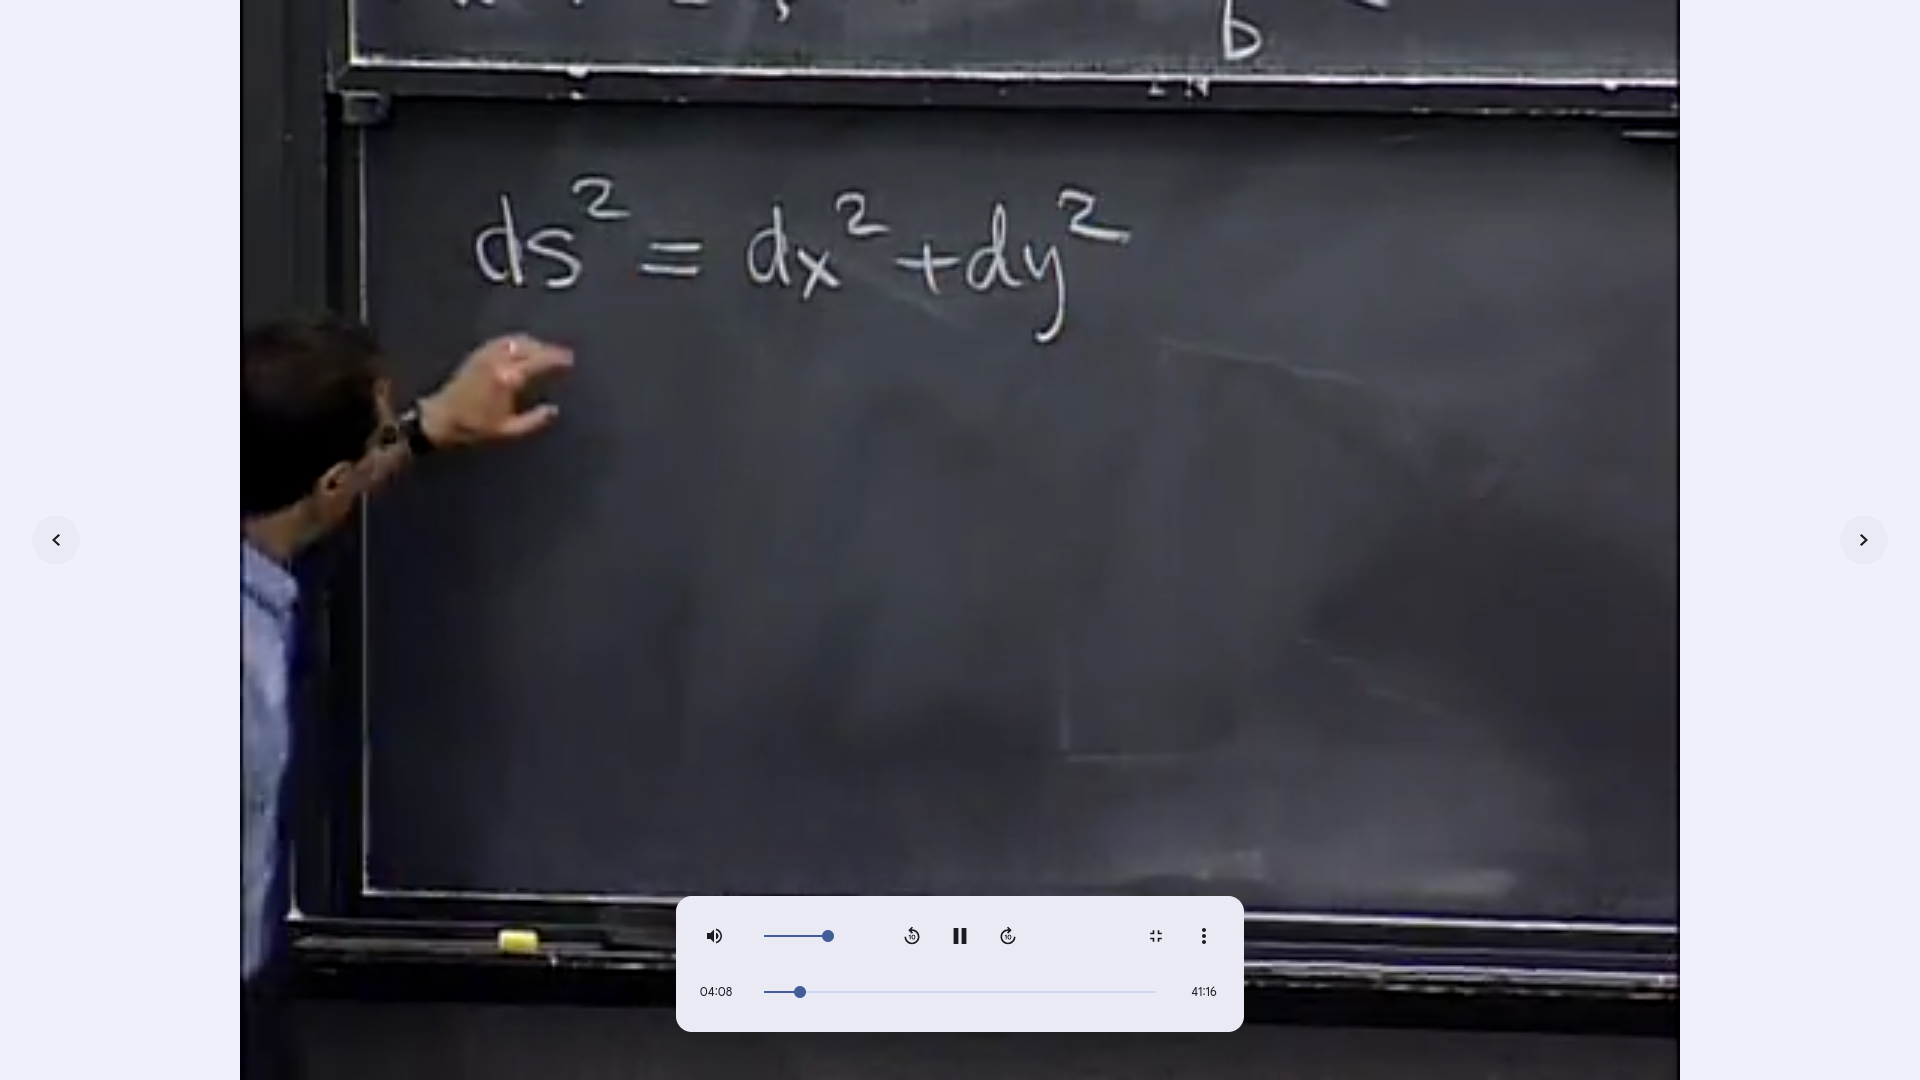 b
ds² = dx² + dy²
04:08
41:16